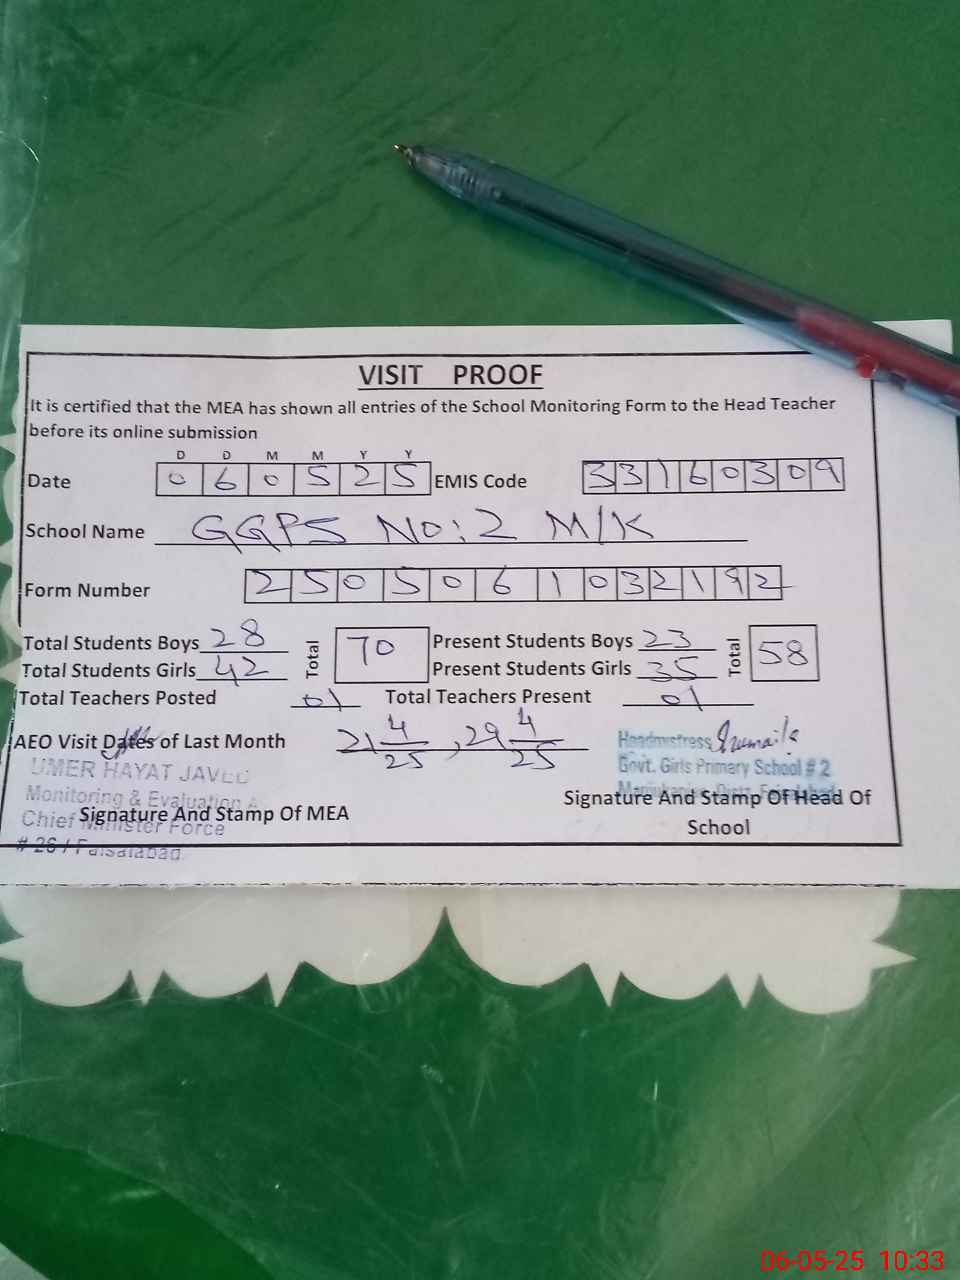 VISIT PROOF
It is certified that the MEA has shown all entries of the School Monitoring Form to the Head Teacher
before its online submission
D D M M Y Y
Date 0 6 0 5 2 5 EMIS Code 3 3 1 6 0 3 0 9
School Name GGPS No: 2 M/K
Form Number 2 5 0 5 0 6 1 0 3 2 1 9 2
Total Students Boys 28 Total 70 Present Students Boys 23 Total 58
Total Students Girls 42 Present Students Girls 35
Total Teachers Posted 01 Total Teachers Present 01
AEO Visit Dates of Last Month 21 4/25, 29 4/25
Headmistress
Govt. Girls Primary School # 2
Faisalabad
UMER HAYAT JAVED
Monitoring & Evaluation A
Chief Minister Force
# 26 / Faisalabad
Signature And Stamp Of MEA
Signature And Stamp Of Head Of
School
06-05-25 10:33